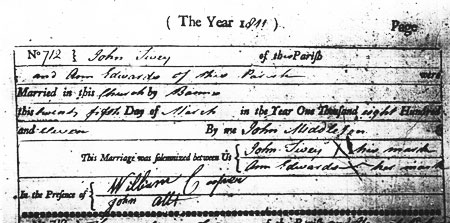 ( The Year 1811 ) Page
No 712 } John Ivey of this Parish
and Ann Edwards of this Parish were
Married in this Church by Banns
this twenty fifth Day of March in the Year One Thousand eight Hundred
and eleven By me John Middleton
This Marriage was solemnized between Us { John Ivey X his mark
Ann Edwards X her mark
In the Presence of { William Cooper
John Allt